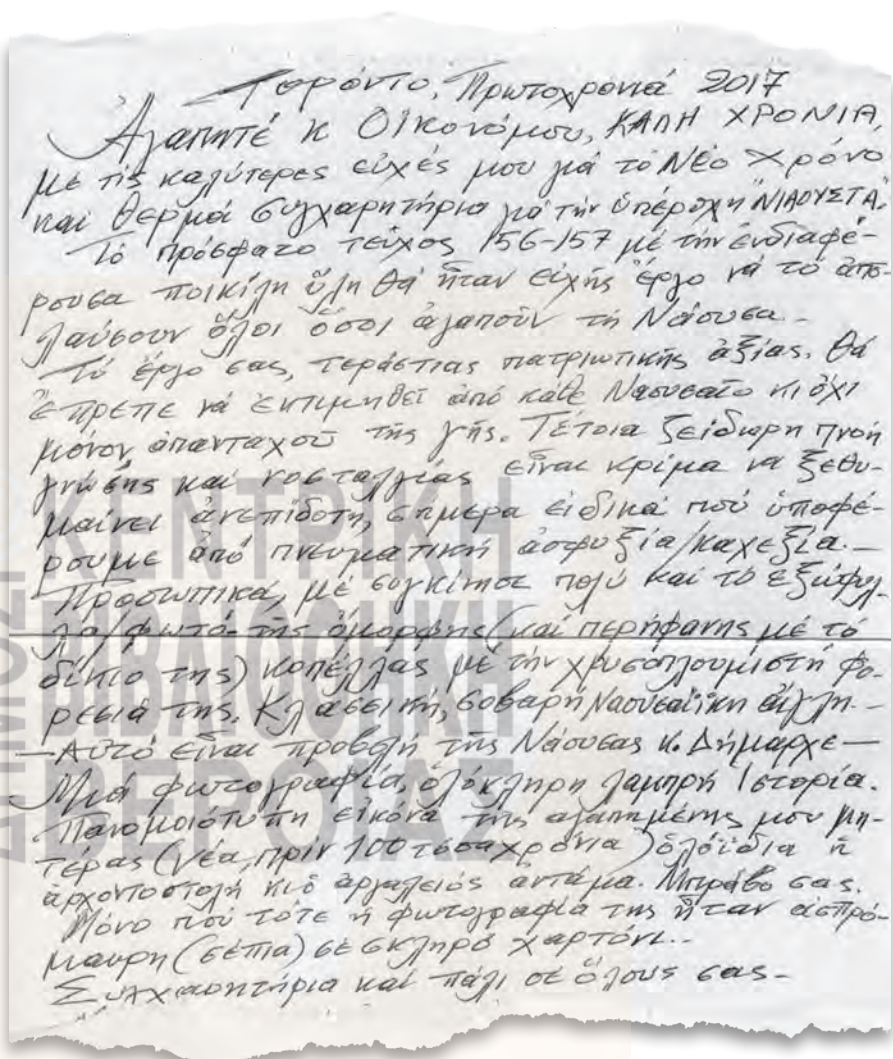 Τορόντο, Πρωτοχρονιά 2017
Ἀγαπητέ κ Οἰκονόμου, ΚΑΛΗ ΧΡΟΝΙΑ,
μέ τίς καλύτερες εὐχές μου γιά τό Νέο Χρόνο
καί θερμά συγχαρητήρια γιά τήν ὑπέροχη "ΝΙΑΟΥΣΤΑ".
Τό πρόσφατο τεῦχος 156-157 μέ τήν ἐνδιαφέ-
ρουσα ποικίλη ὕλη θά ἦταν εὐχῆς ἔργο νά τό ἀπο-
λαύσουν ὅλοι ὅσοι ἀγαποῦν τή Νάουσα -
Τό ἔργο σας, τεράστιας πατριωτικῆς ἀξίας. Θά
ἔπρεπε νά ἐκτιμηθεῖ ἀπό κάθε Ναουσαῖο κι ὄχι
μόνον, ἁπανταχοῦ τῆς γῆς. Τέτοια ζείδωρη πνοή
γνώσης καί νοσταλγίας εἶναι κρίμα να ξεθυ-
μαίνει ἀνεπίδοτη, σήμερα εἰδικά πού ὑποφέ-
ρουμε ἀπό πνευματική ἀσφυξία/καχεξία.-
Προσωπικά, μέ συγκίνησε πολύ καί τό ἐξώφυλ-
λο/φωτό-τῆς ὄμορφης (καί περήφανης μέ τό
δίκιο της) κοπέλλας μέ τήν χρυσοπλουμιστή φο-
ρεσιά της. Κλασσική, σοβαρή Ναουσαίϊκη αἴγλη.-
—Αὐτό εἶναι προβολή τῆς Νάουσας κ. Δήμαρχε—
Μιά φωτογραφία, ὁλόκληρη λαμπρή Ἱστορία.
Πανομοιότυπη εἰκόνα τῆς αγαπημένης μου μη-
τέρας (νέα, πρίν 100 τόσα χρόνια) ὁλόϊδια ἡ
ἀρχοντοστολή κι ὁ ἀργαλειός ἀντάμα. Μπράβο σας.
Μόνο πού τότε ἡ φωτογραφία της ἦταν ἀσπρό-
μαυρη (σέπια) σέ σκληρό χαρτόνι..
Συγχαρητήρια καί πάλι σέ ὅλους σας-
ΚΕΝΤΡΙΚΗ
ΒΙΒΛΙΟΘΗΚΗ
ΒΕΡΟΙΑΣ